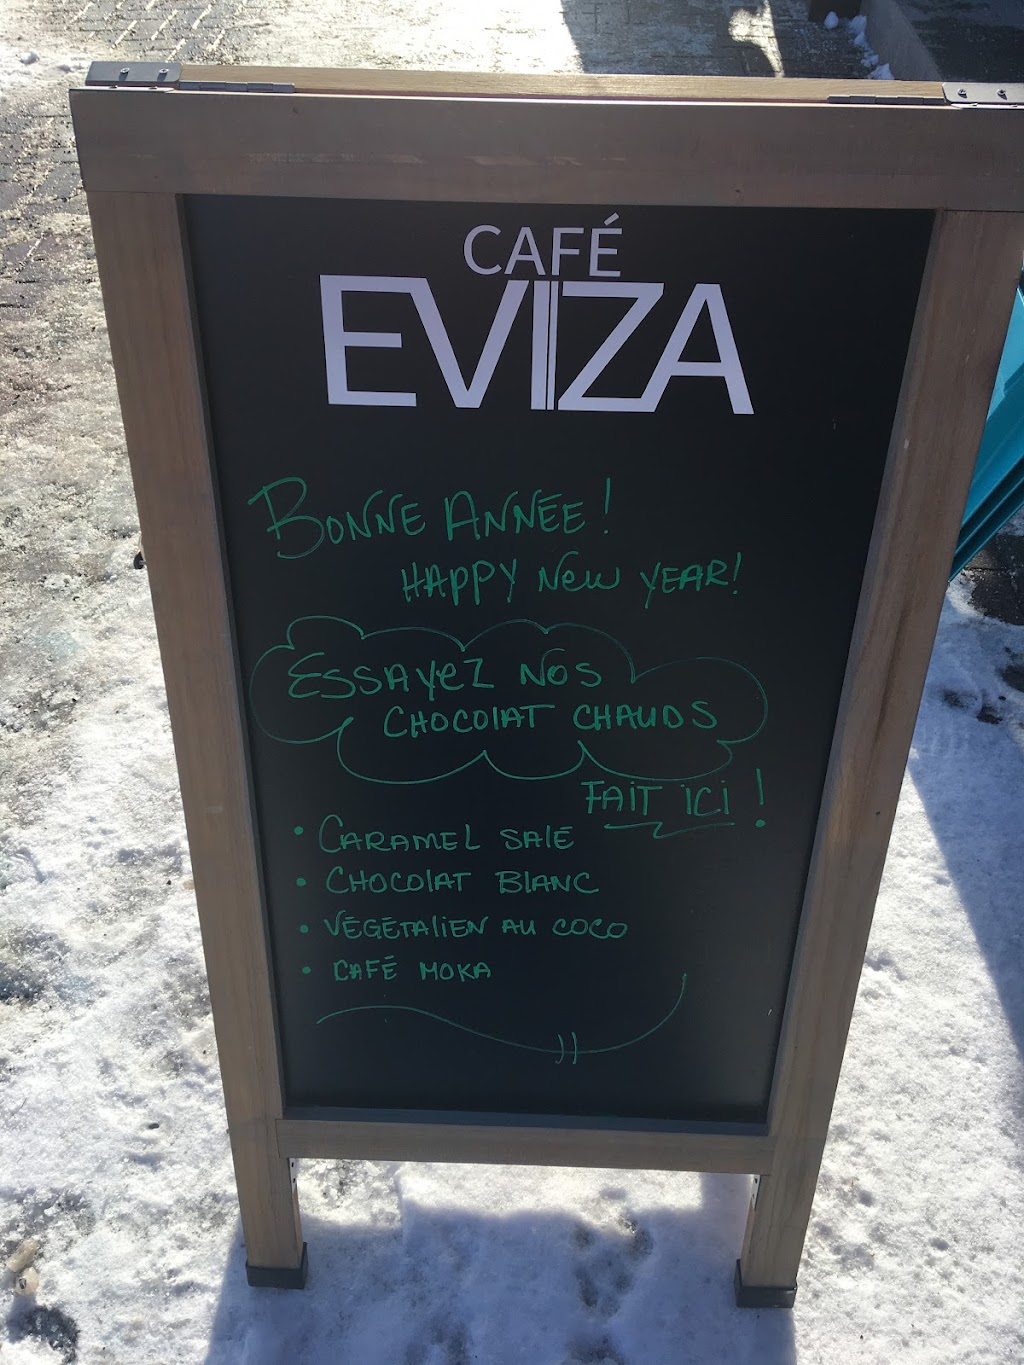 CAFÉ
EVIZA
BONNE ANNÉE!
HAPPY NEW YEAR!
ESSAYEZ NOS
CHOCOLAT CHAUDS
FAIT ICI!
• CARAMEL SALÉ
• CHOCOLAT BLANC
• VÉGÉTALIEN AU COCO
• CAFÉ MOKA